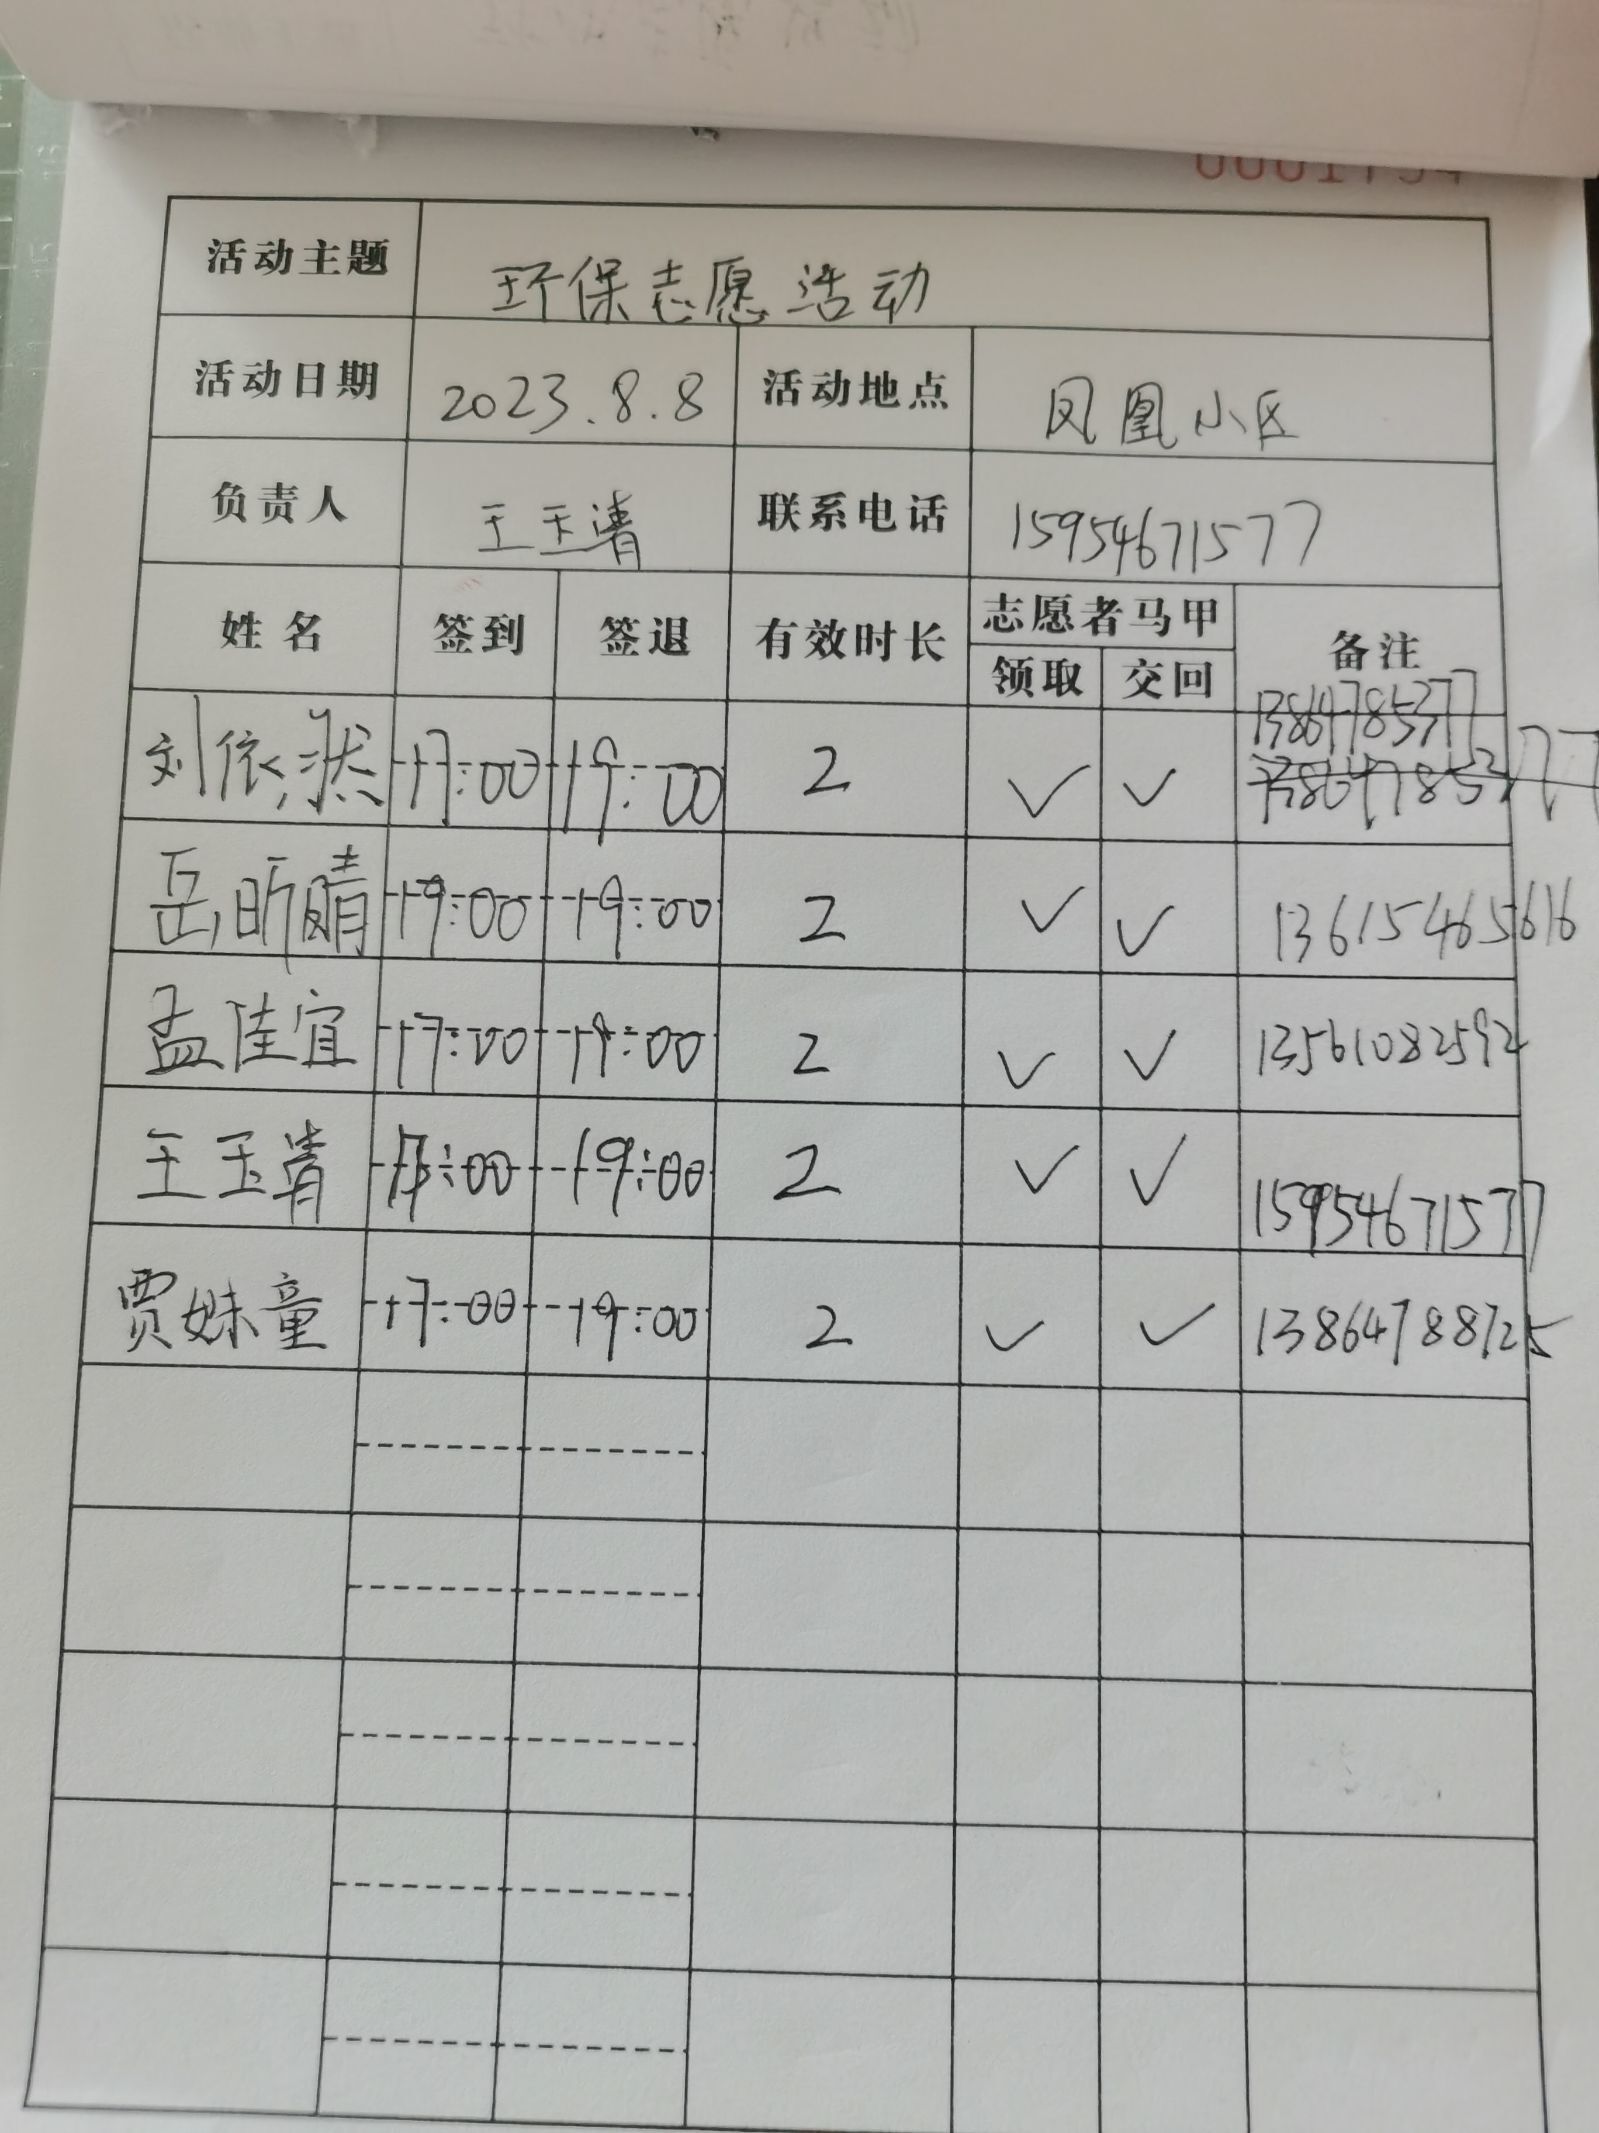 0001794
活动主题 环保志愿活动
活动日期 2023.8.8 活动地点 凤凰小区
负责人 王玉清 联系电话 15954671577
姓名 签到 签退 有效时长 志愿者马甲 备注
领取 交回
13864785377
刘依湉 17:00 19:00 2 ✓ ✓ 13864785377
岳昕晴 19:00 19:00 2 ✓ ✓ 13615465616
孟佳宜 17:00 19:00 2 ✓ ✓ 13561082592
王玉清 17:00 19:00 2 ✓ ✓ 15954671577
贾姝童 17:00 19:00 2 ✓ ✓ 13864788725